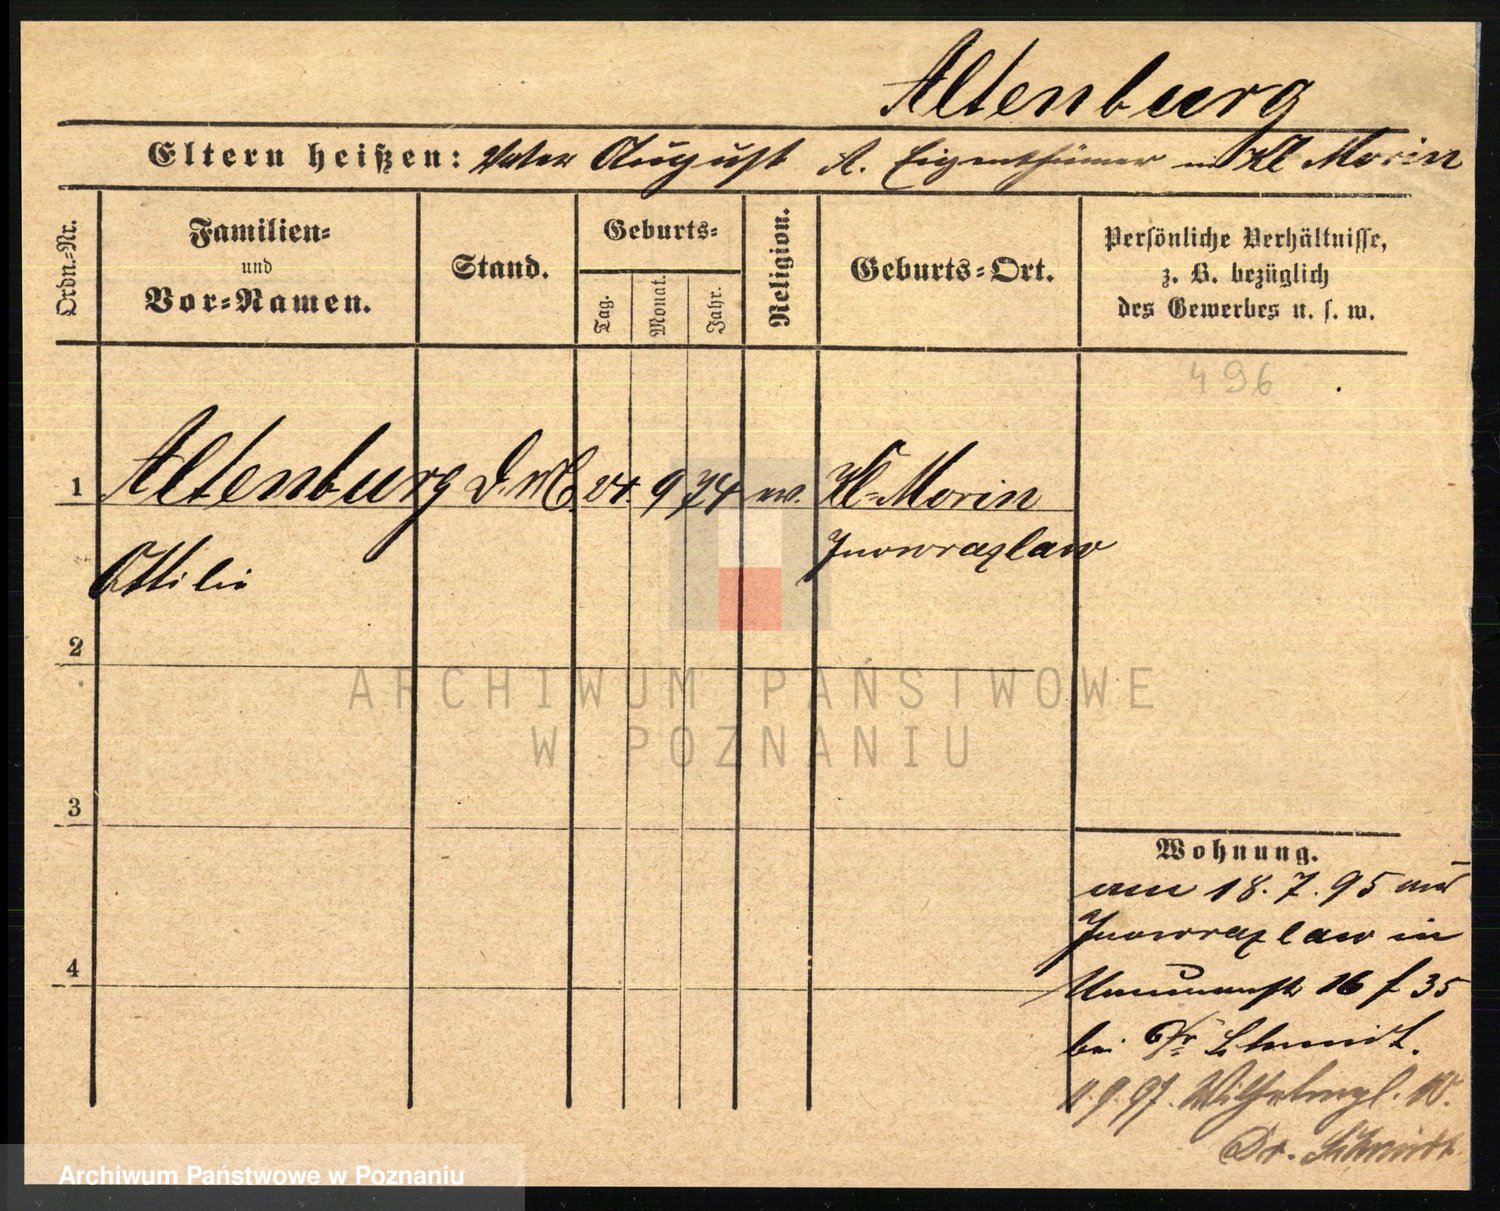 Altenburg
Eltern heißen: Vater August A. Eigenthümer in Kl Morin
Ordn.-Nr.
Familien-
und
Vor-Namen.
Stand.
Geburts-
Tag.
Monat.
Jahr.
Religion.
Geburts-Ort.
Persönliche Verhältnisse,
z. B. bezüglich
des Gewerbes u. s. w.
496
1 Altenburg 24. 9 74 ev. Kl-Morin
Ottilie Inowrazlaw
2
ARCHIWUM PAŃSTWOWE
W POZNANIU
3
Wohnung.
am 18. 7. 95 aus
Inowrazlaw in
16 f 35
bei Fr Schmidt.
11.9.97. Wilhelmpl. 10.
Dr. Schmidt
4
Archiwum Państwowe w Poznaniu